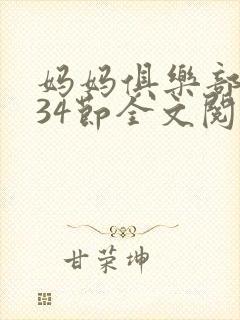 妈妈俱樂部
34节全文閱
甘荣坤